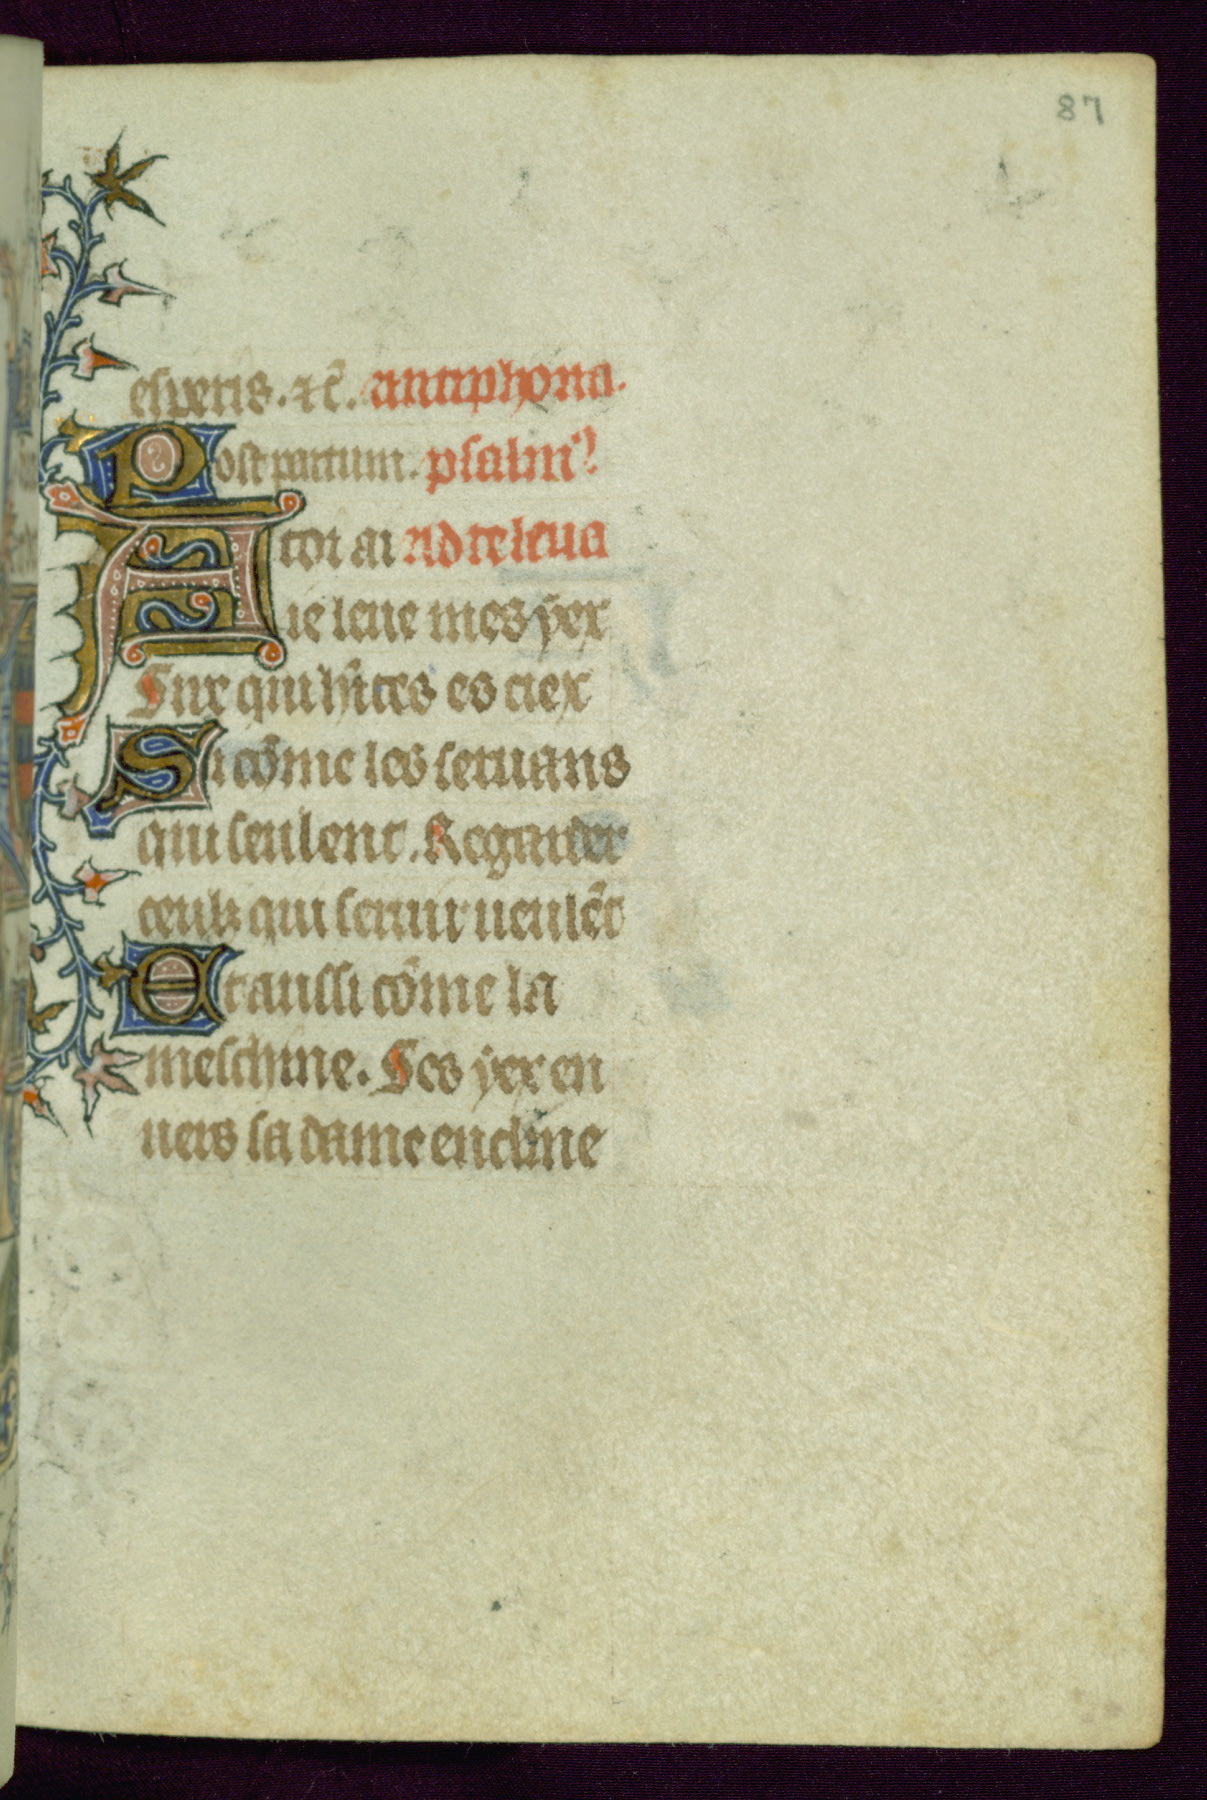 87
esperis. ⁊c̄. antiphona.
Post partum. psalm9
A toi ai Ad te leua
uie leue mes yex
Sire qui hītes es ciex
Si cōme les seruans
qui seulent. Regarder
ceuls qui seruir ueulēt
Et aussi cōme la
meschine. Ses yex en
uers sa dame encline